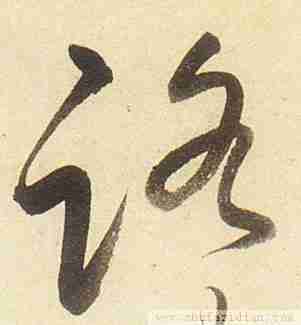 路
www.shufazidian.com